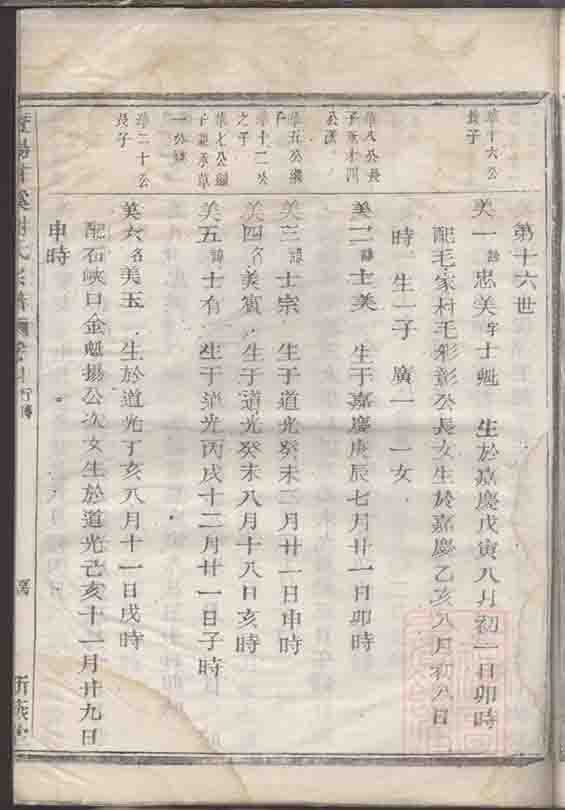 第十六世
華十六公
長子
美一諱忠美字士魁 生於嘉慶戊寅八月初一日卯時
配毛家村毛彩彰公長女生於嘉慶乙亥八月初八日
時 生一子 廣一 一女
華八公長
美二諱士美 生于嘉慶庚辰七月廿一日卯時
華五公
美三諱士宗 生于道光癸未三月廿一日申時
華十二公
之子
美四名美賓 生于道光癸未八月十八日亥時
華七公
美五諱士有 生于道光丙戌十二月廿一日子時
華二十公
長子
美六名美玉 生於道光丁亥八月十一日戌時
配石峽口金魁揚公次女生於道光己亥十一月廿九日
申時